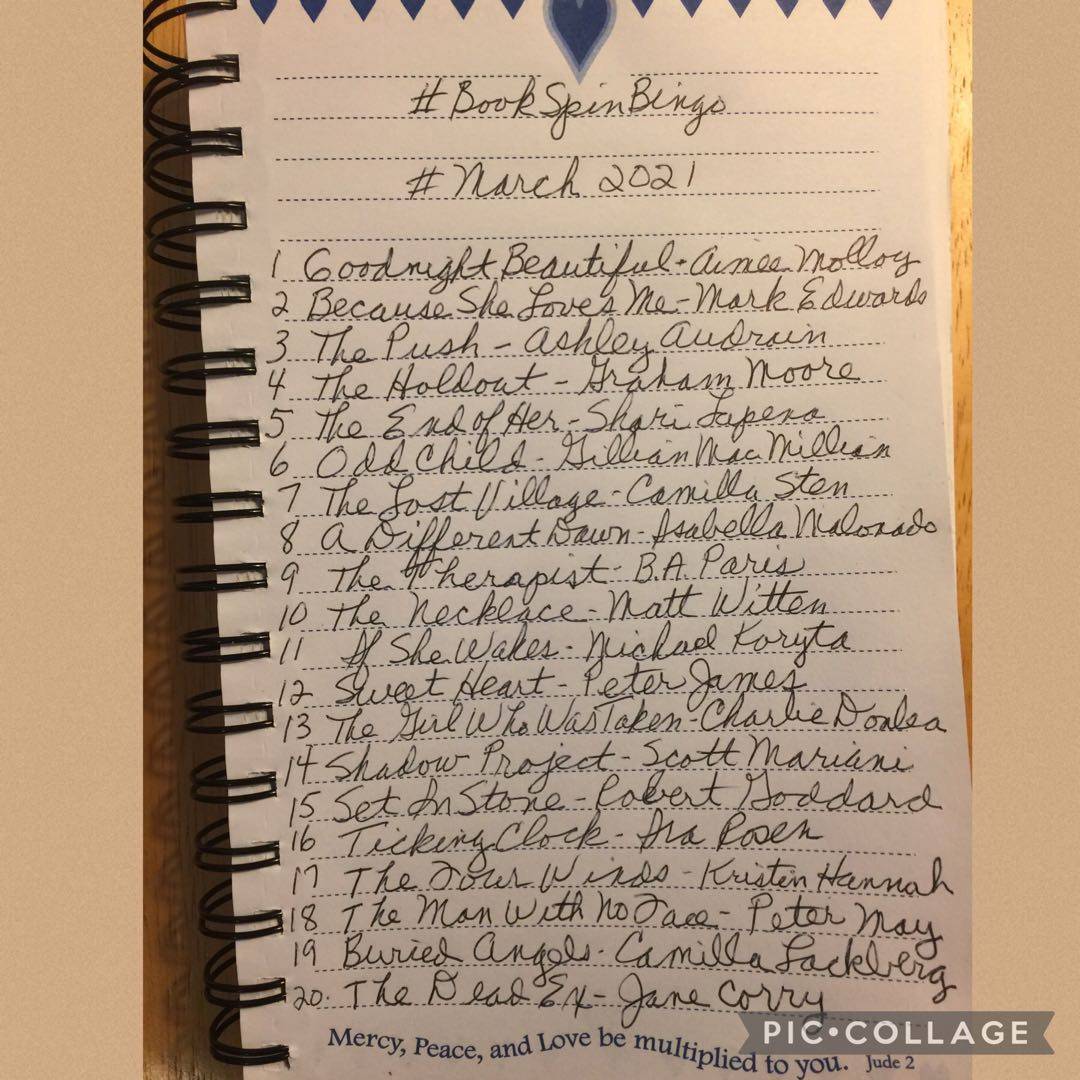 #BookSpinBingo
#March 2021
1 Goodnight Beautiful - Aimee Molloy
2 Because She Loves Me - Mark Edwards
3 The Push - Ashley Audrain
4 The Holdout - Graham Moore
5 The End of Her - Shari Lapena
6 Odd Child - Gillian MacMillian
7 The Lost Village - Camilla Sten
8 A Different Dawn - Isabella Maldonado
9 The Therapist - B.A. Paris
10 The Necklace - Matt Witten
11 If She Wakes - Michael Koryta
12 Sweet Heart - Peter James
13 The Girl Who Was Taken - Charlie Donlea
14 Shadow Project - Scott Mariani
15 Set In Stone - Robert Goddard
16 Ticking Clock - Ira Rosen
17 The Four Winds - Kristen Hannah
18 The Man With No Face - Peter May
19 Buried Angels - Camilla Lackberg
20. The Dead Ex - Jane Corry
Mercy, Peace, and Love be multiplied to you. Jude 2
PIC•COLLAGE